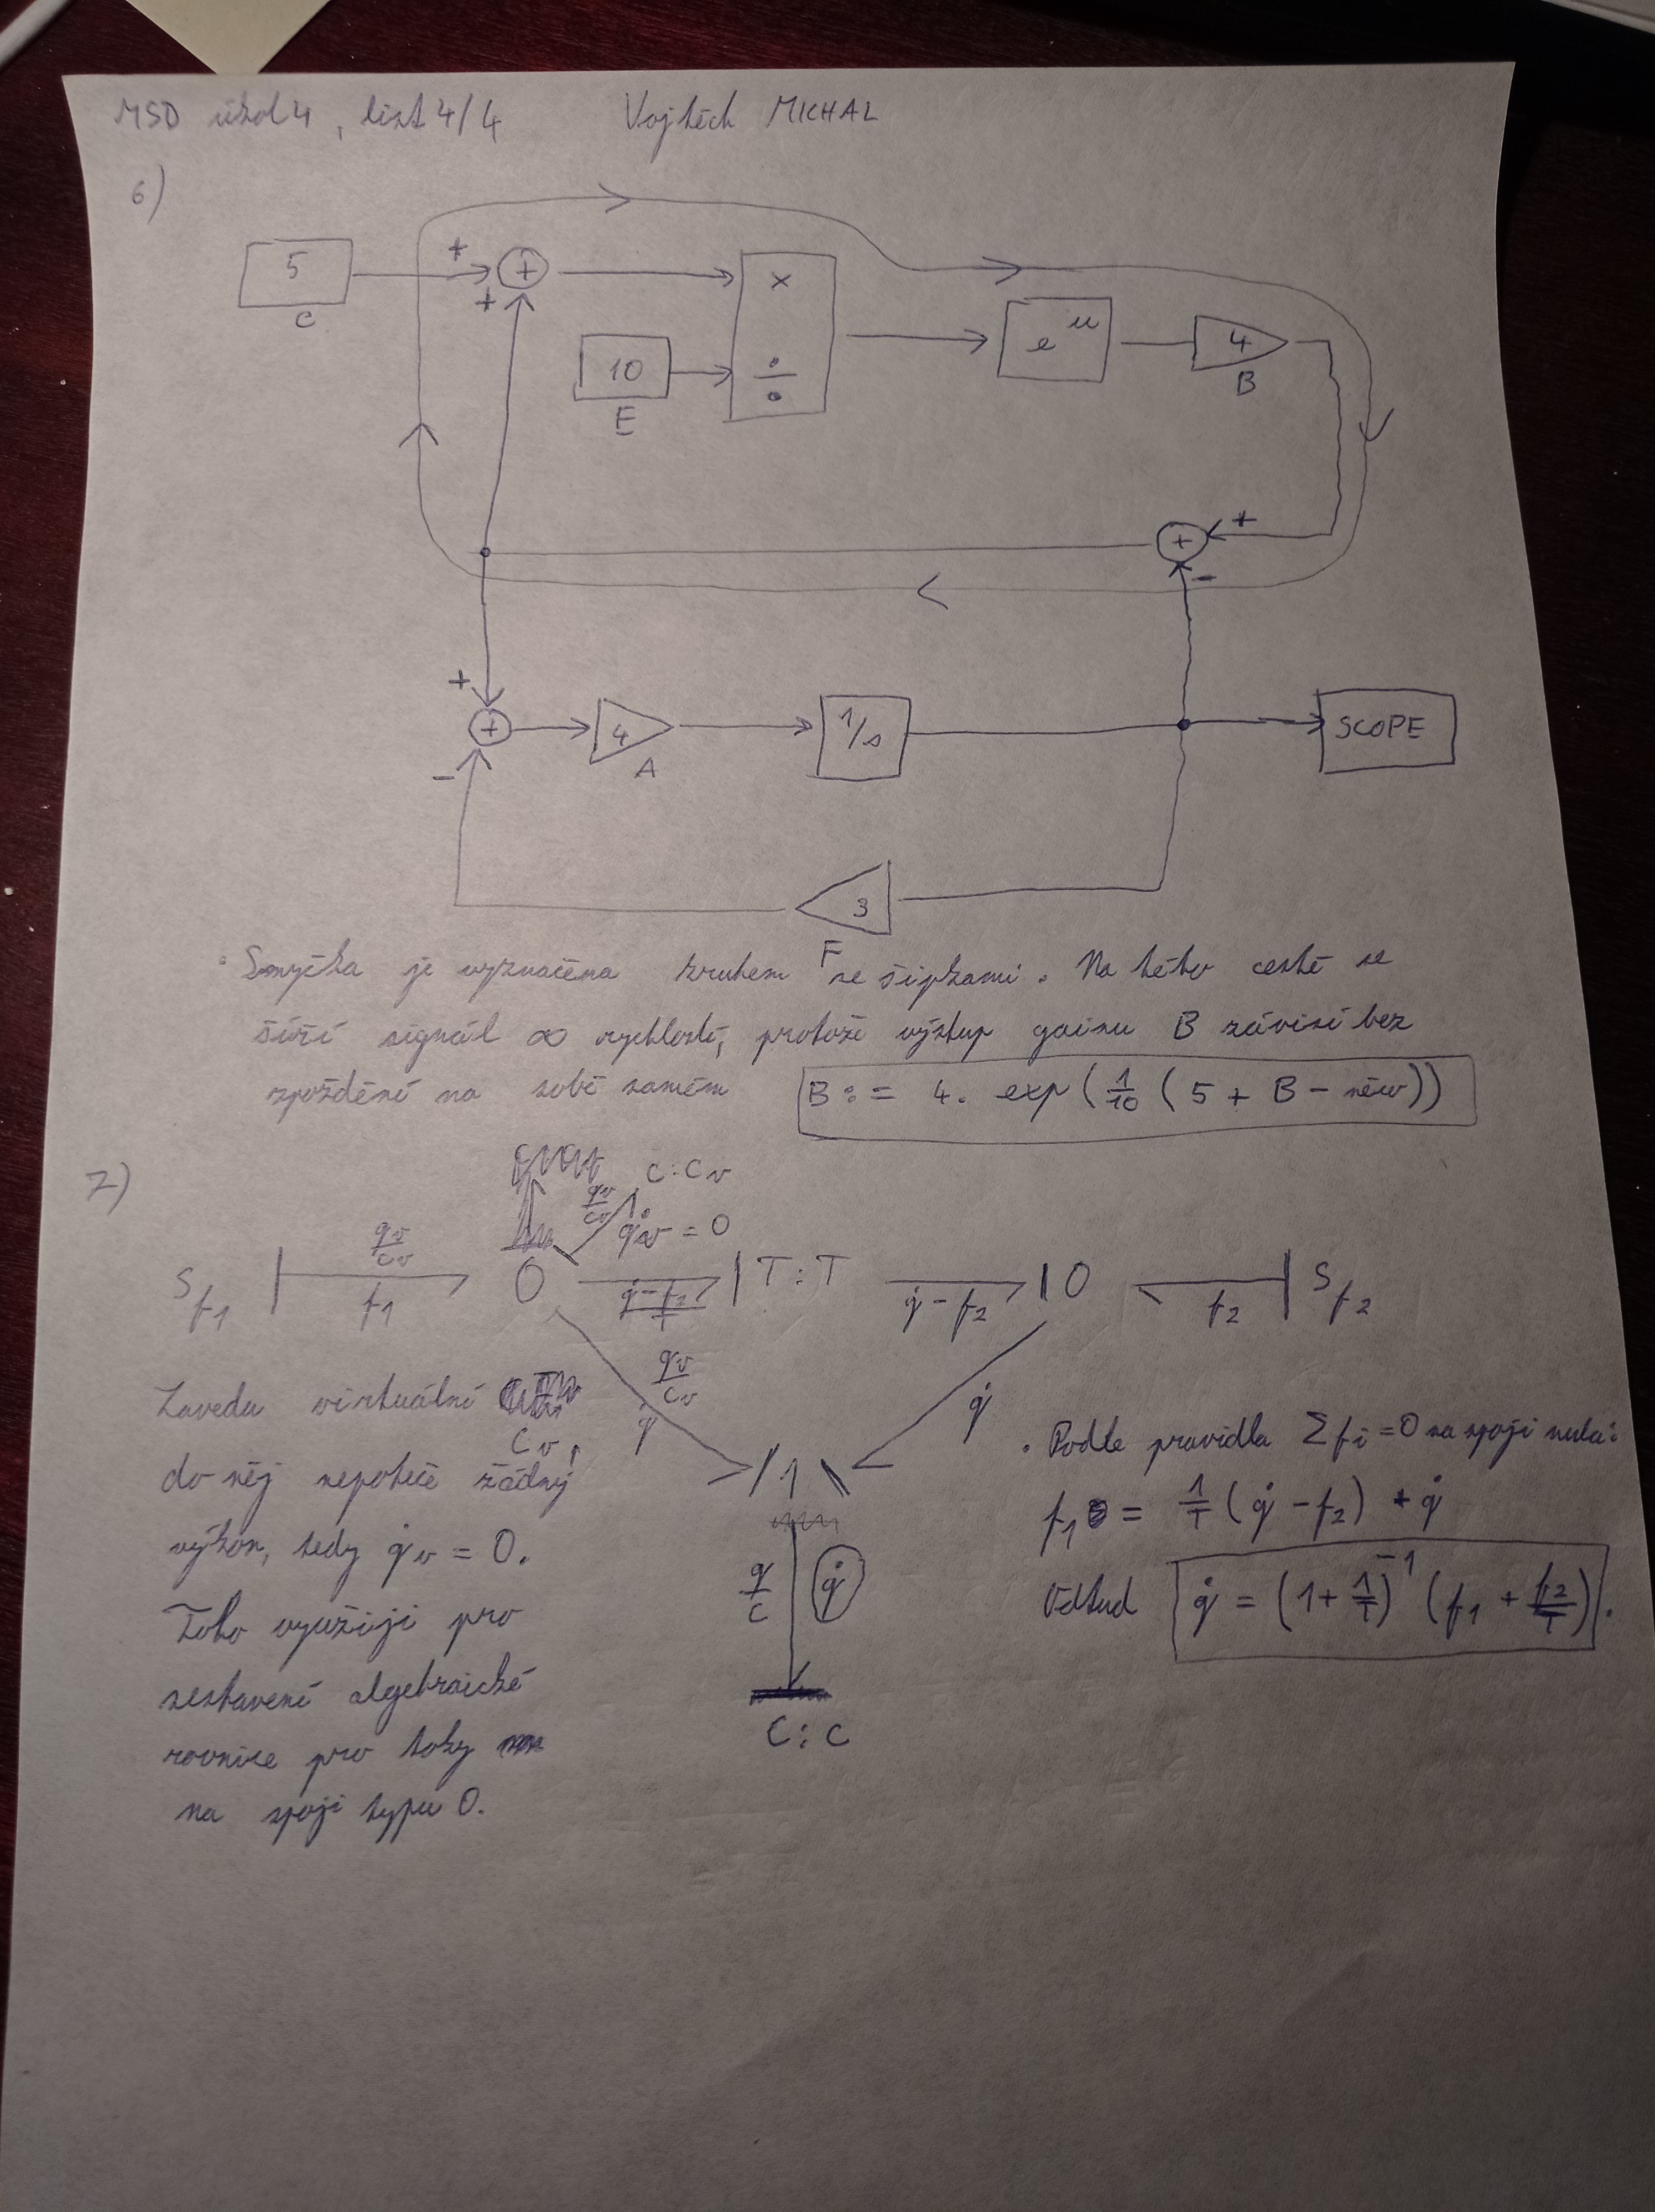 MSD úkol 4, list 4/4 Vojtěch MICHAL
6)
5
C
+
+
+
10
E
×
÷
e^u
4
B
+
+
-
+
+
-
4
A
1/s
SCOPE
3
F
Smyčka je vyznačena kruhem se šipkami. Na této cestě se
šíří signál ∞ rychlostí, protože výstup gainu B závisí bez
zpoždění na sobě samém B := 4. exp(1/10 (5 + B - něco))
7)
C:Cv
qv/Cv
q̇v = 0
Sf1 | qv/Cv f1 0 (q̇-f2)/T | T:T q̇-f2 | 0 f2 | Sf2
qv/Cv
q̇
q̇
1
q/C q̇
C:C
Zavedu virtuální
Cv,
do něj nepoteče žádný
výkon, tedy q̇v = 0.
Toho využiji pro
sestavení algebraické
rovnice pro toky
na spoji typu 0.
. Podle pravidla Σfi = 0 na spoji nula:
f1 = 1/T (q̇ - f2) + q̇
Odtud q̇ = (1+1/T)^-1 (f1 + f2/T).